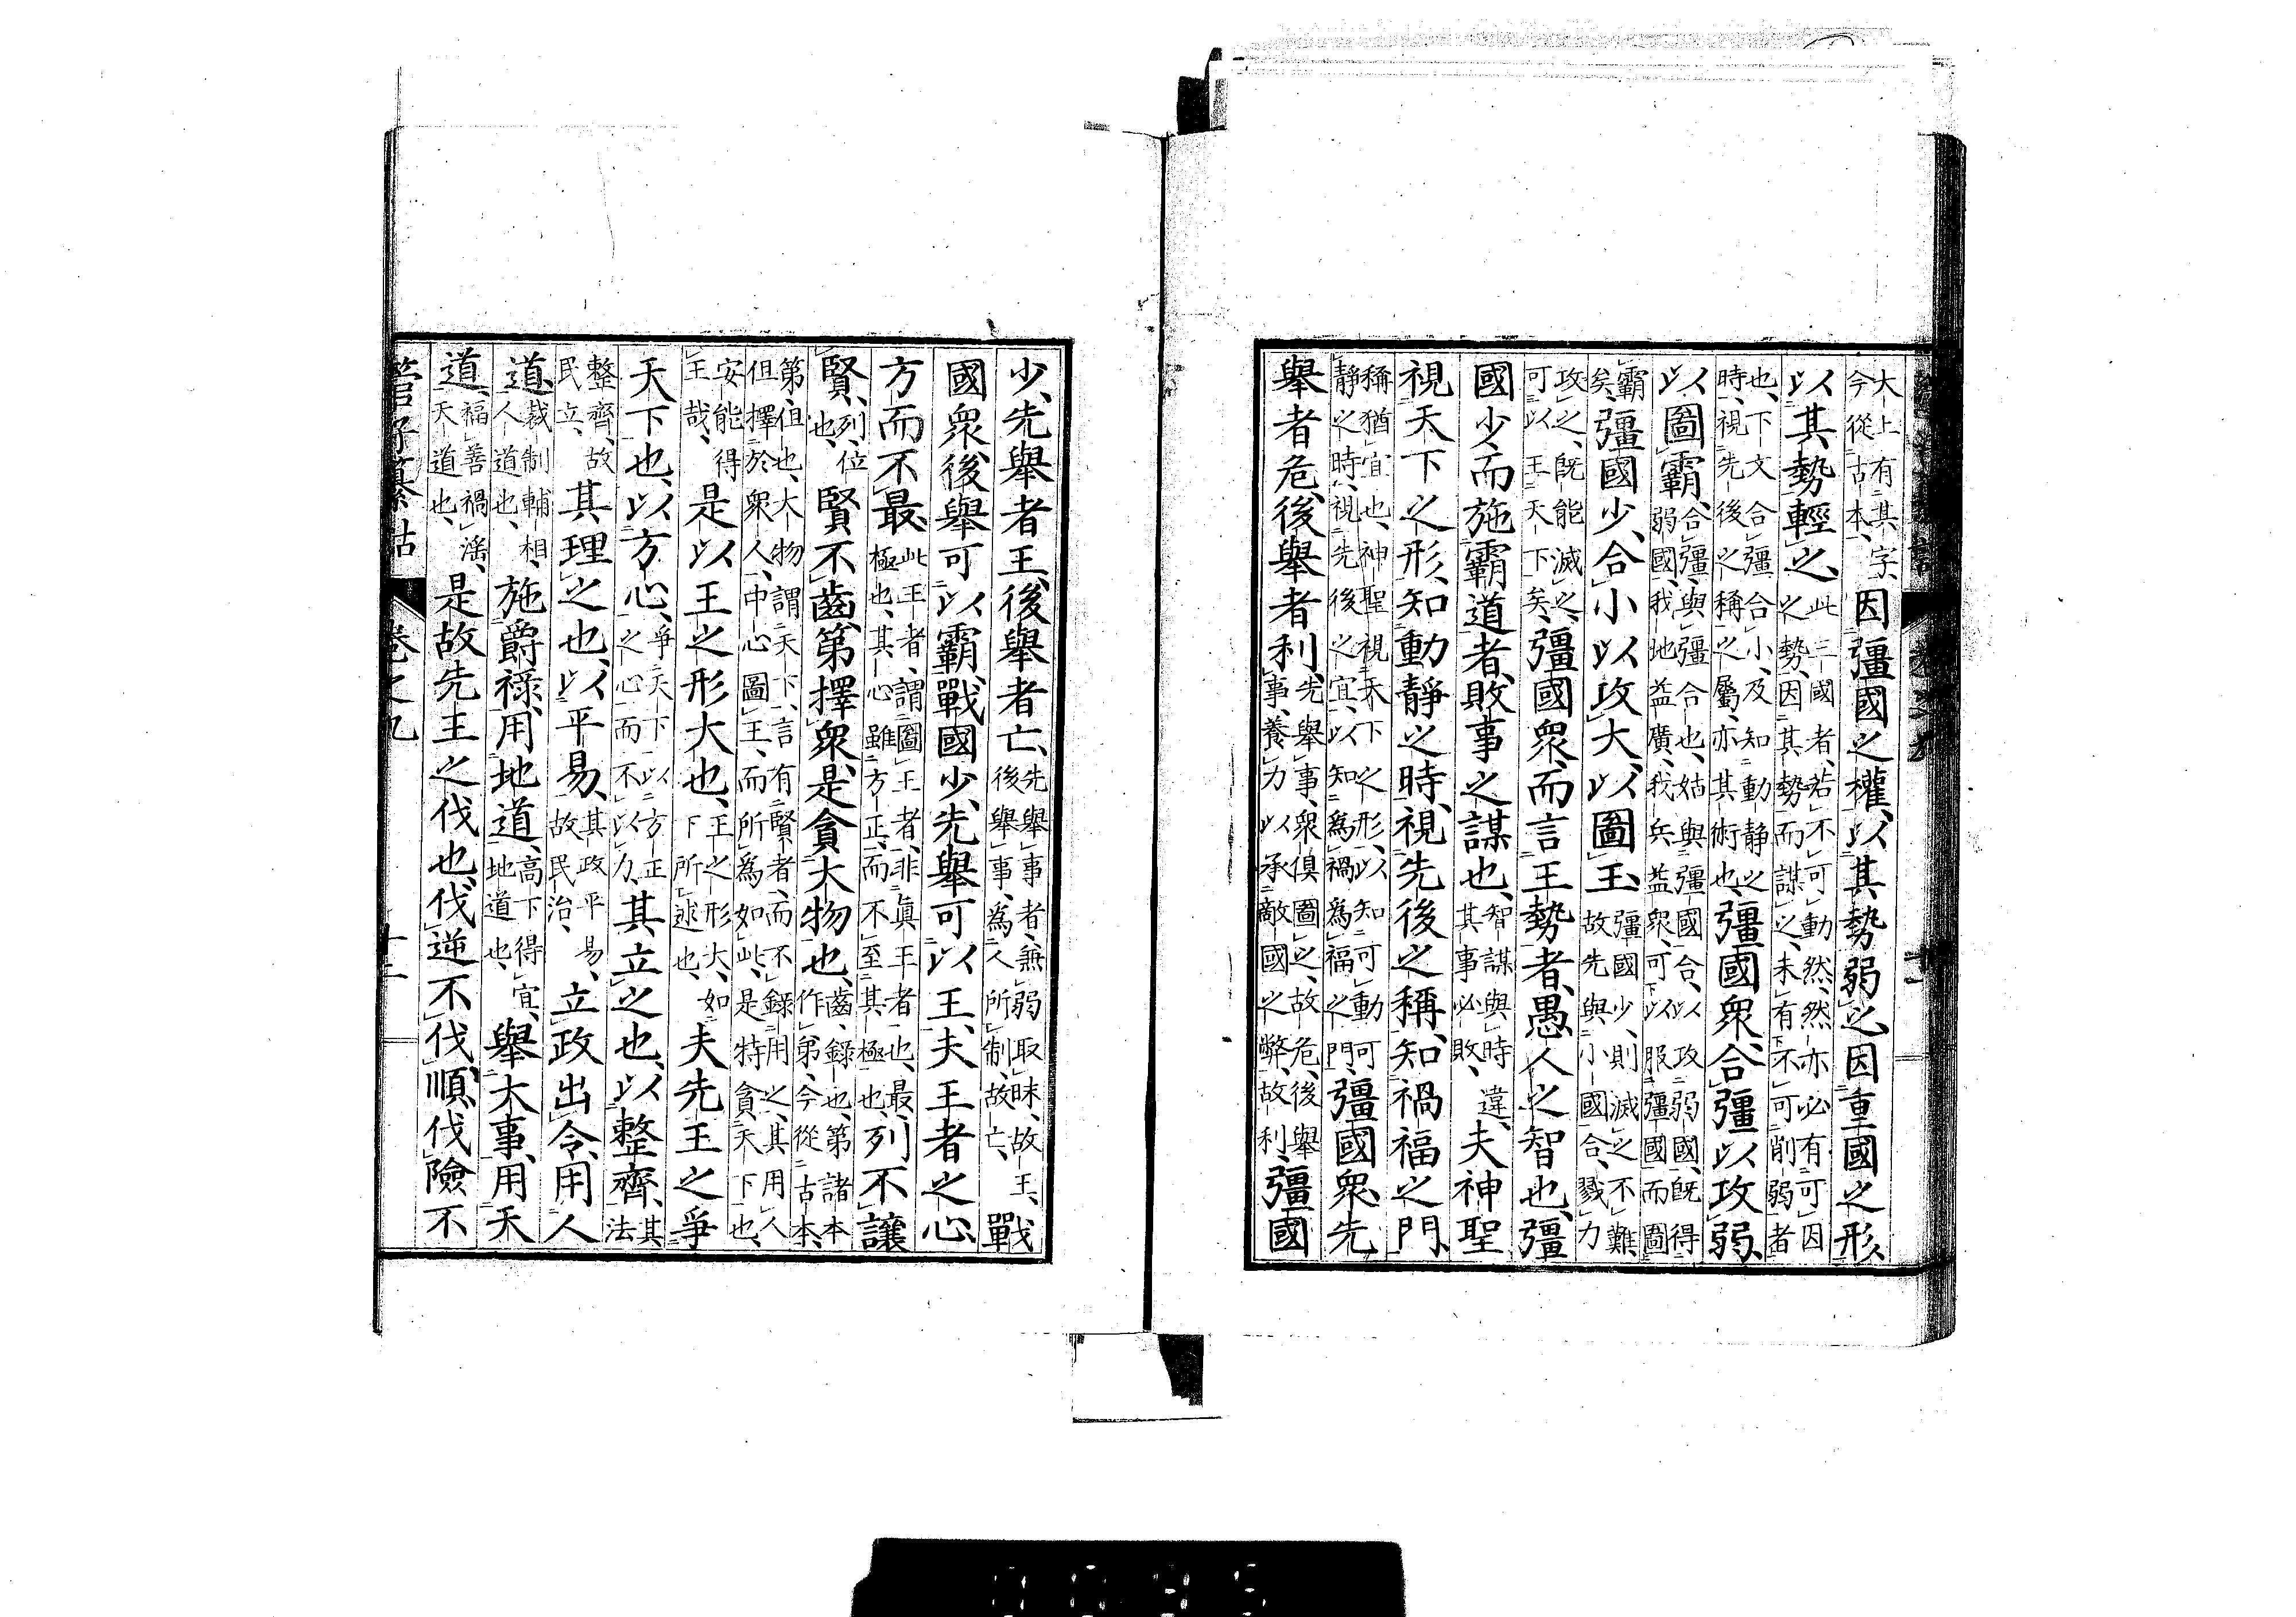 大上有其字、今從古本、因彊國之權、以其勢弱之、因重國之形、
以其勢輕之、此三國者、若不可動然、然亦必有可因之勢、因其勢而謀之、未有不可削弱者
也、下文合彊合小、及知動靜之時、視先後之稱之屬、亦其術也、彊國眾、合彊以攻弱、
以圖霸、合彊、與彊合也、姑與彊國合、以攻弱國、既得弱國、我地益廣、我兵益眾、可以服彊國而圖
霸矣、彊國少、合小以攻大、以圖王、彊國少、則滅之不難、故先與小國合、戮力
攻之、既能滅之、可以王天下矣、彊國眾、而言王勢者、愚人之智也、彊
國少、而施霸道者、敗事之謀也、智謀與時違、其事必敗、夫神聖
視天下之形、知動靜之時、視先後之稱、知禍福之門、
稱猶宜也、神聖視天下之形、以知可動可靜之時、視先後之宜、以知爲禍爲福之門、彊國眾、先
舉者危、後舉者利、先舉事、眾俱圖之、故危、後舉事、養力以承敵國之弊、故利、彊國
少、先舉者王、後舉者亡、先舉事者、兼弱取昧、故王、後舉事、爲人所制、故亡、戰
國眾、後舉可以霸、戰國少、先舉可以王、夫王者之心、
方而不最、此王者、謂圖王者、非眞王者也、最、極也、其心雖方正、而不至其極也、列不讓
賢、列、位也、賢不齒第擇眾、是貪大物也、齒、錄也、第諸本作弟、今從古本、
第、但也、大物謂天下、言有賢者、而不錄用之、其用人但擇於眾人、中心圖王、而所爲如此、是特貪天下也、
安能得王哉、是以王之形大也、王之形大、如下所述也、夫先王之爭
天下也、以方心、爭天下以方正之心、而不以力、其立之也、以整齊、其法
整齊、故民立、其理之也、以平易、其政平易、故民治、立政出令、用人
道、裁制輔相、人道也、施爵祿、用地道、高下得宜、地道也、舉大事、用天
道、福善禍淫、天道也、是故先王之伐也、伐逆不伐順、伐險不
管子纂詁 卷之九 十二